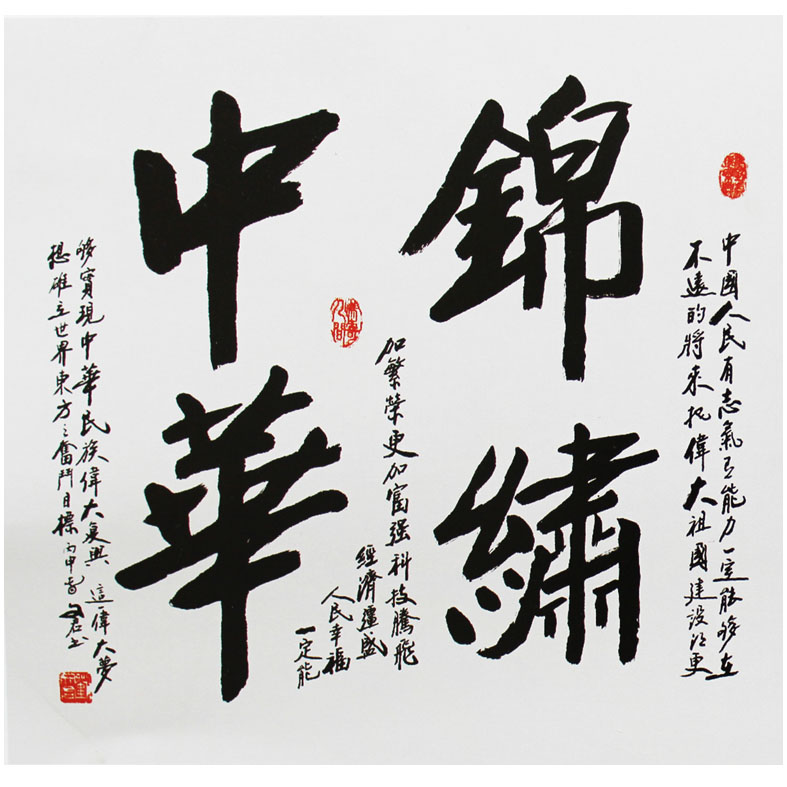 中國人民有志氣有能力一定能够在
不遠的將來把偉大祖國建設得更
錦繡
加繁榮更加富强科技騰飛
經濟疆盛
人民幸福
一定能
中華
够實現中華民族偉大复興這一偉大夢
想雄立世界東方之奮鬥目標丙申春